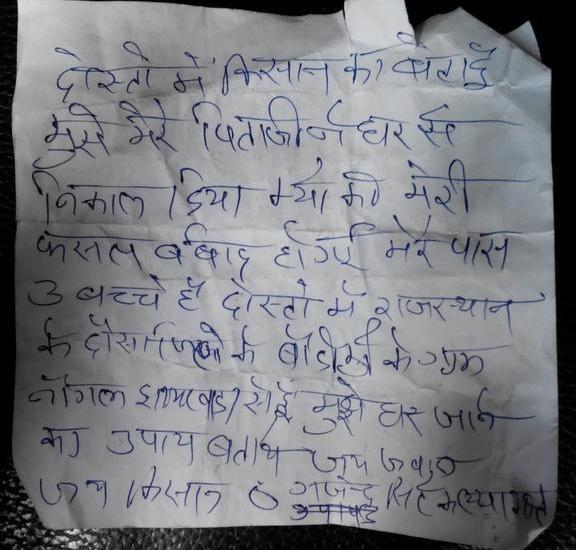 दोस्तो में किसान का बेटा हुँ
मुझे मेरे पिताजी ने घर से
निकाल दिया क्यो की मेरी
फसल बर्बाद होगई मेरे पास
3 बच्चे है दोस्तो में राजस्थान
के दौसा जिले के
नांगल झामरवाडा से हुँ मुझे घर जाने
का उपाय बताय जय जवान
जय किसान गजेन्द्र सिंह कल्याणवत